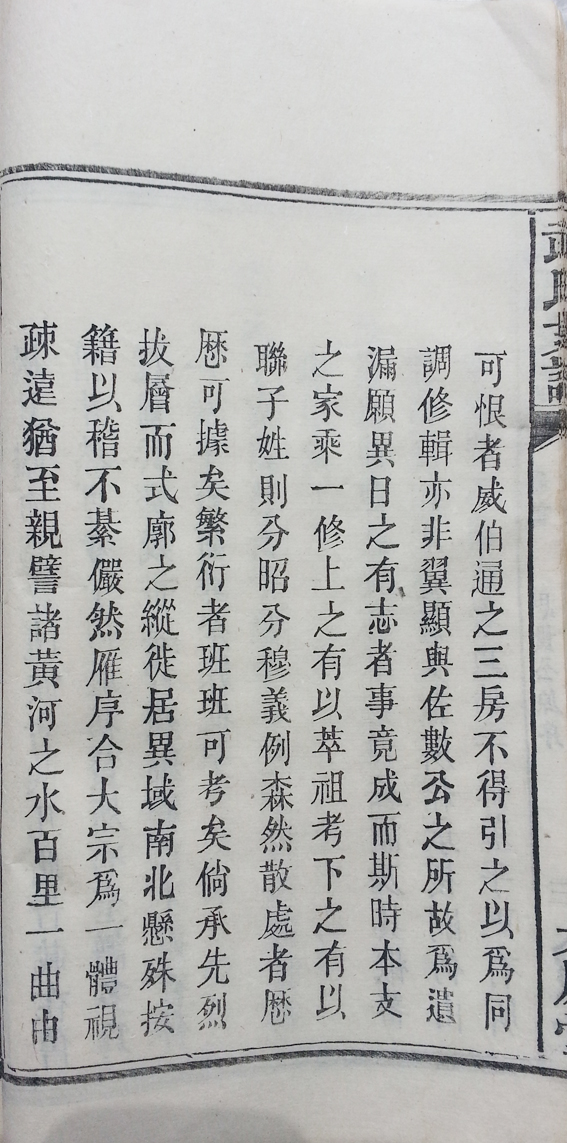 可恨者威伯通之三房不得引之以爲同
調修輯亦非翼顯與佐數公之所故爲遺
漏願異日之有志者事竟成而斯時本支
之家乘一修上之有以萃祖考下之有以
聯子姓則分昭分穆義例森然散處者歷
歷可據矣繁衍者班班可考矣倘承先烈
拔層而式廓之縱徙居異域南北懸殊按
籍以稽不綦儼然雁序合大宗爲一體視
疎遠猶至親譬諸黃河之水百里一曲由